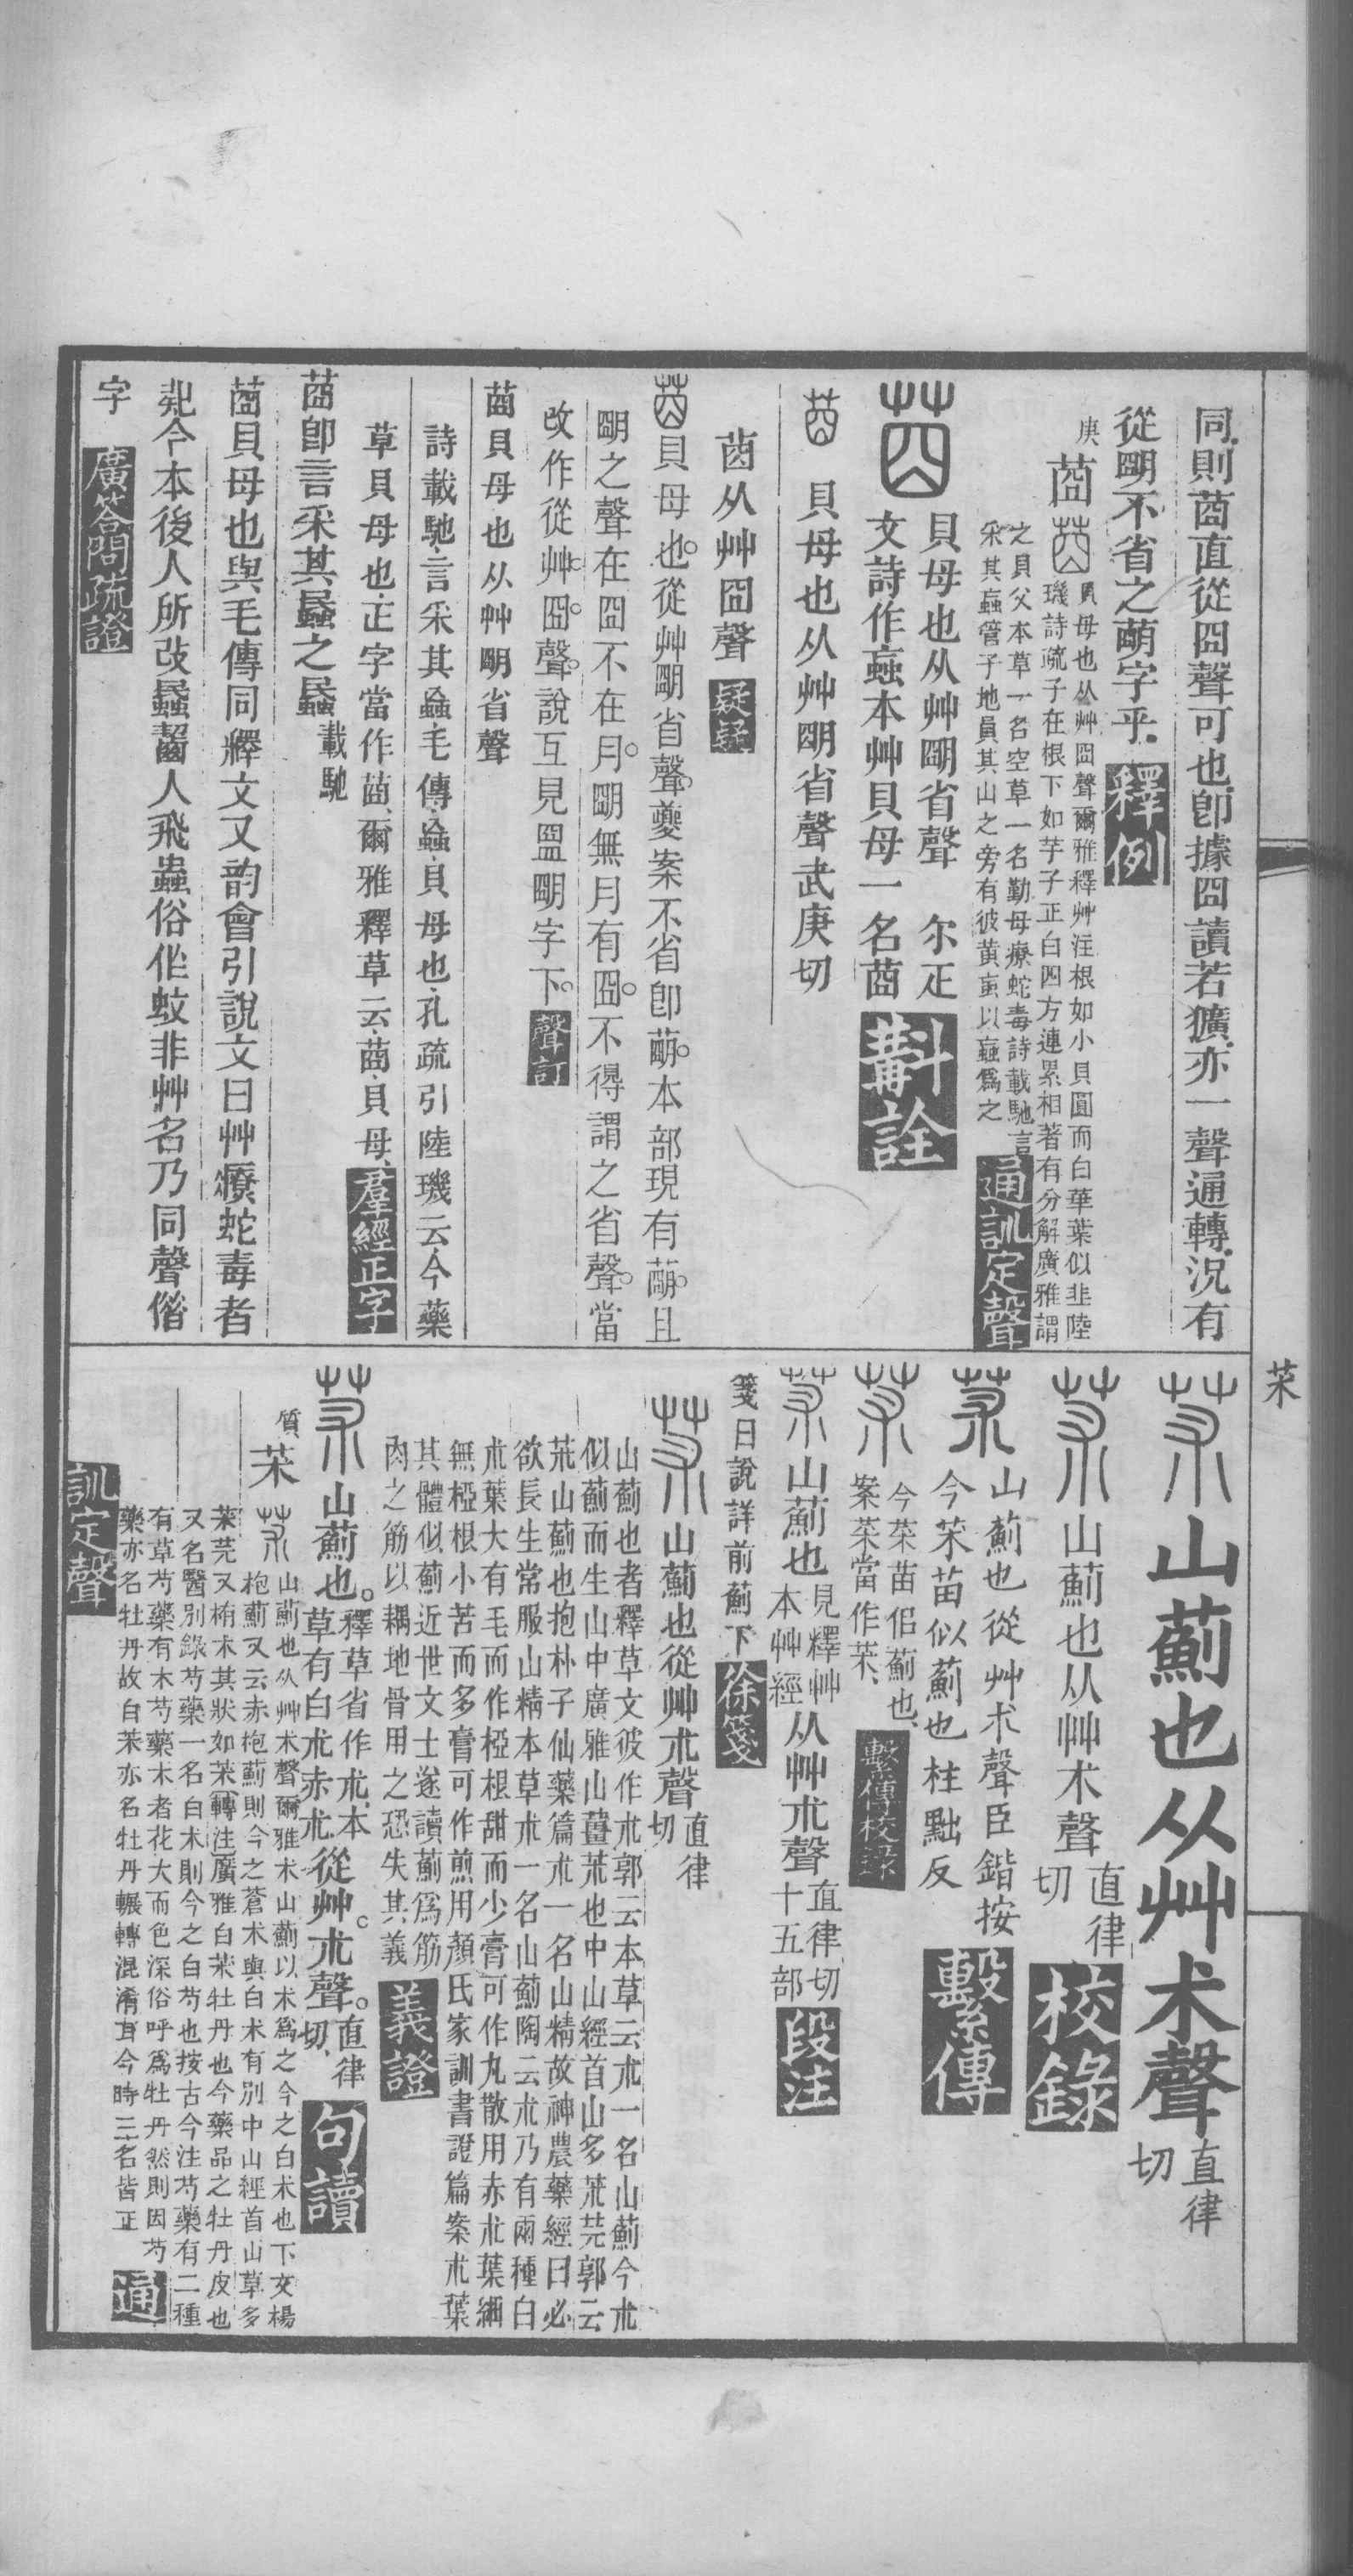 同則莔直從囧聲可也卽據囧讀若獷亦一聲通轉況有
從朙不省之萌字乎釋例
庚 莔 貝母也从艸囧聲爾雅釋艸注根如小貝圓而白華葉似韭陸
璣詩疏子在根下如芋子正白四方連累相著有分解廣雅謂
之貝父本草一名空草一名勤母療蛇毒詩載馳言
采其蝱管子地員其山之旁有彼黄蝱以蝱爲之 通訓定聲
貝母也从艸朙省聲 尒疋
文詩作蝱本艸貝母一名莔 斠詮
貝母也从艸朙省聲武庚切
莔从艸囧聲 疑疑
貝母也從艸朙省聲夔案不省卽萌本部現有萌且
朙之聲在囧不在月朙無月有囧不得謂之省聲當
改作從艸囧聲說互見盟朙字下 聲訂
莔貝母也从艸朙省聲
詩載馳言采其蝱毛傳蝱貝母也孔疏引陸璣云今藥
草貝母也正字當作莔爾雅釋草云莔貝母 羣經正字
莔卽言采其蝱之蝱 載馳
莔貝母也與毛傳同釋文又韵會引說文曰艸療蛇毒者
今本後人所改蝱齧人飛蟲俗作蚊非艸名乃同聲借
字 廣答問疏證
茱
山薊也从艸朮聲 直律切
山薊也从艸朮聲 直律切 校錄
山薊也從艸朮聲臣鍇按
今茱苗似薊也柱黜反 繫傳
今茱苗佀薊也
案茱當作茱 繫傳校錄
山薊也 見釋艸本艸經 从艸朮聲 直律切十五部 段注
箋曰說詳前薊下 徐箋
山薊也從艸朮聲 直律切
山薊也者釋草文彼作朮郭云本草云朮一名山薊今朮
似薊而生山中廣雅山薑茱也中山經首山多茱芫郭云
茱山薊也抱朴子仙藥篇朮一名山精故神農藥經曰必
欲長生常服山精本草朮一名山薊陶云朮乃有兩種白
朮葉大有毛而作椏根甜而少膏可作丸散用赤朮葉細
無椏根小苦而多膏可作煎用顏氏家訓書證篇案朮葉
其體似薊近世文士遂讀薊爲筋
肉之筋以耦地骨用之恐失其義 義證
山薊也 釋草省作朮本草有白朮赤朮 從艸朮聲 直律切 句讀
質 茱 山薊也从艸朮聲爾雅朮山薊以朮爲之今之白朮也下文楊
枹薊又云赤枹薊則今之蒼朮與白朮有別中山經首山草多
茱芫又栯木其狀如茱 轉注 廣雅白茱牡丹也今藥品之牡丹皮也
又名醫別錄芍藥一名白朮則今之白芍也按古今注芍藥有二種
有草芍藥有木芍藥木者花大而色深俗呼爲牡丹然則因芍
藥亦名牡丹故白茱亦名牡丹輾轉混淆耳今時三名皆正 通
訓定聲